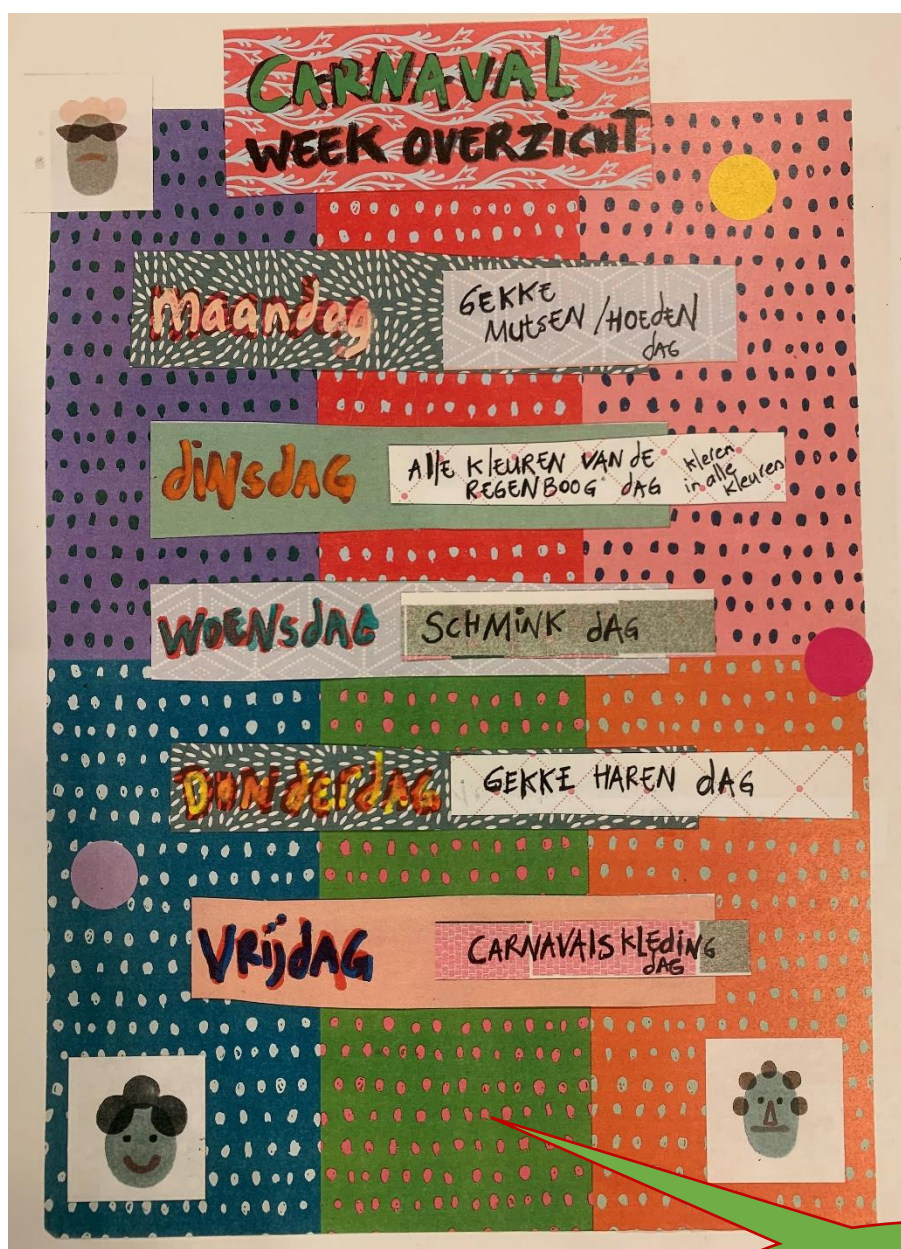 CARNAVAL
WEEK OVERZICHT
maandag
GEKKE
MUTSEN/HOEDEN
DAG
dINSdAG
AllE KlEUREN VAN dE
REGENBOOG dAG
kleren
in alle
kleuren
WOENSdAG
SCHMINK dAG
DONdERdAG
GEKKE HAREN dAG
VRIJdAG
CARNAVAlSKlEdiNG
dAG